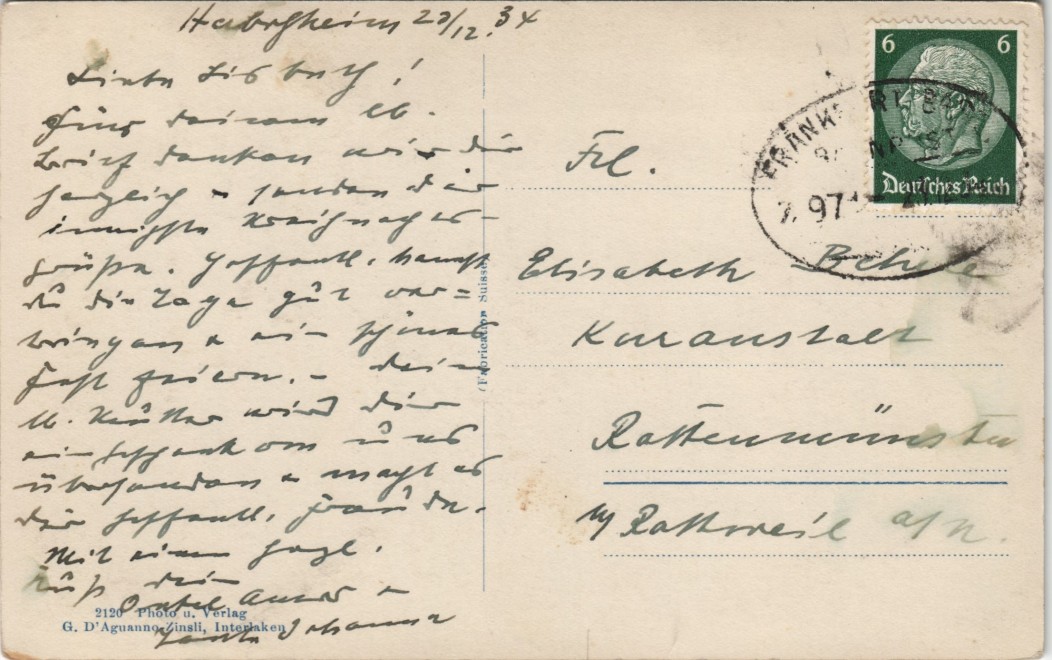 23/12. 34
Liebe Lisbeth!
Für deinen lb.
Brief danken wir dir
herzlich & senden dir
innigste Weihnachts-
grüße. Hoffentl. kannst
du die Tage gut ver=
bringen & ein schönes
Fest feiern. – Deine
lb. Mutter wird dir
ein Geschenk von uns
übersenden & macht es
dir hoffentl. Freude.
Mit einem herzl.
Gruß dein
Onkel &
Tante Johanna
2120 Photo u. Verlag
G. D'Aguanno-Zinsli, Interlaken
(Fabrication Suisse)
6 6
Deutsches Reich
FRANKFURT
Z. 97
Frl.
Elisabeth
Kuranstalt
Rottenmünster
b/ Rottweil a/N.